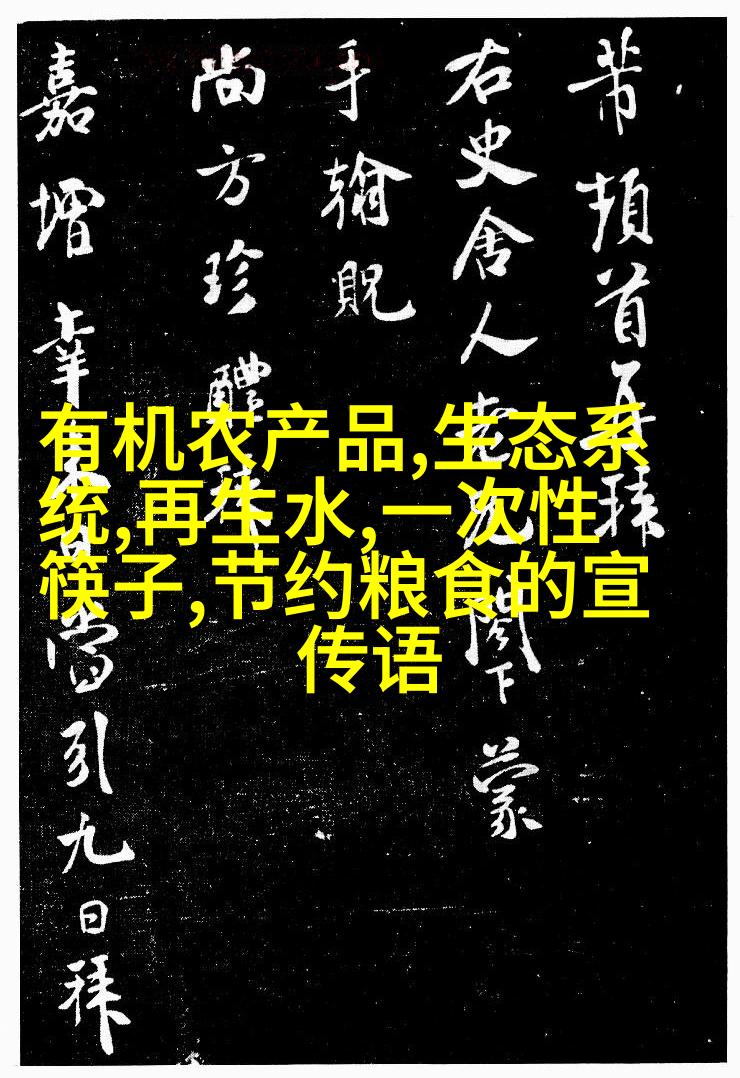 芾頓首再拜
右史舍人老兄閣下蒙
手翰貺
尚方珍醴
嘉增幸嘗引九日拜
有机农产品,生态系
统,再生水,一次性
筷子,节约粮食的宣
传语